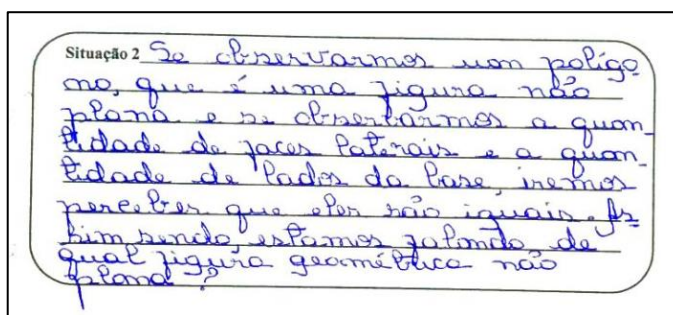 Situação 2 Se observarmos um polígo
no, que é uma figura não
plana e se observarmos a quan_
tidade de faces laterais e a quan_
tidade de lados da base, iremos
perceber que eles são iguais. As
sim sendo, estamos falando, de
qual figura geométrica não
plana?